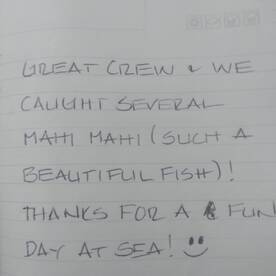 GREAT CREW & WE
CAUGHT SEVERAL
MAHI MAHI (SUCH A
BEAUTIFUL FISH)!
THANKS FOR A FUN
DAY AT SEA!